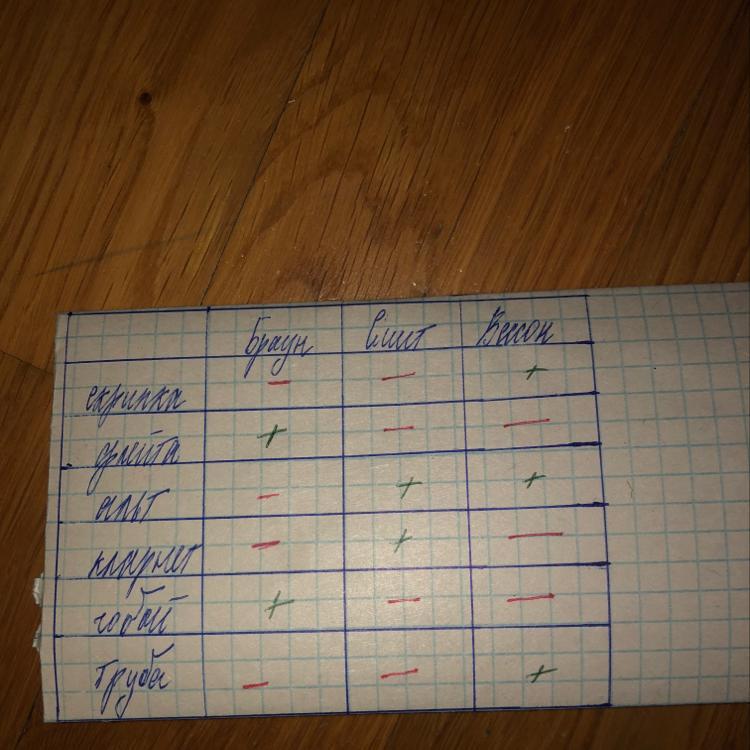 Браун Смит Вессон
скрипка - - +
флейта + - -
альт - + +
кларнет - + -
гобой + - -
труба - - +